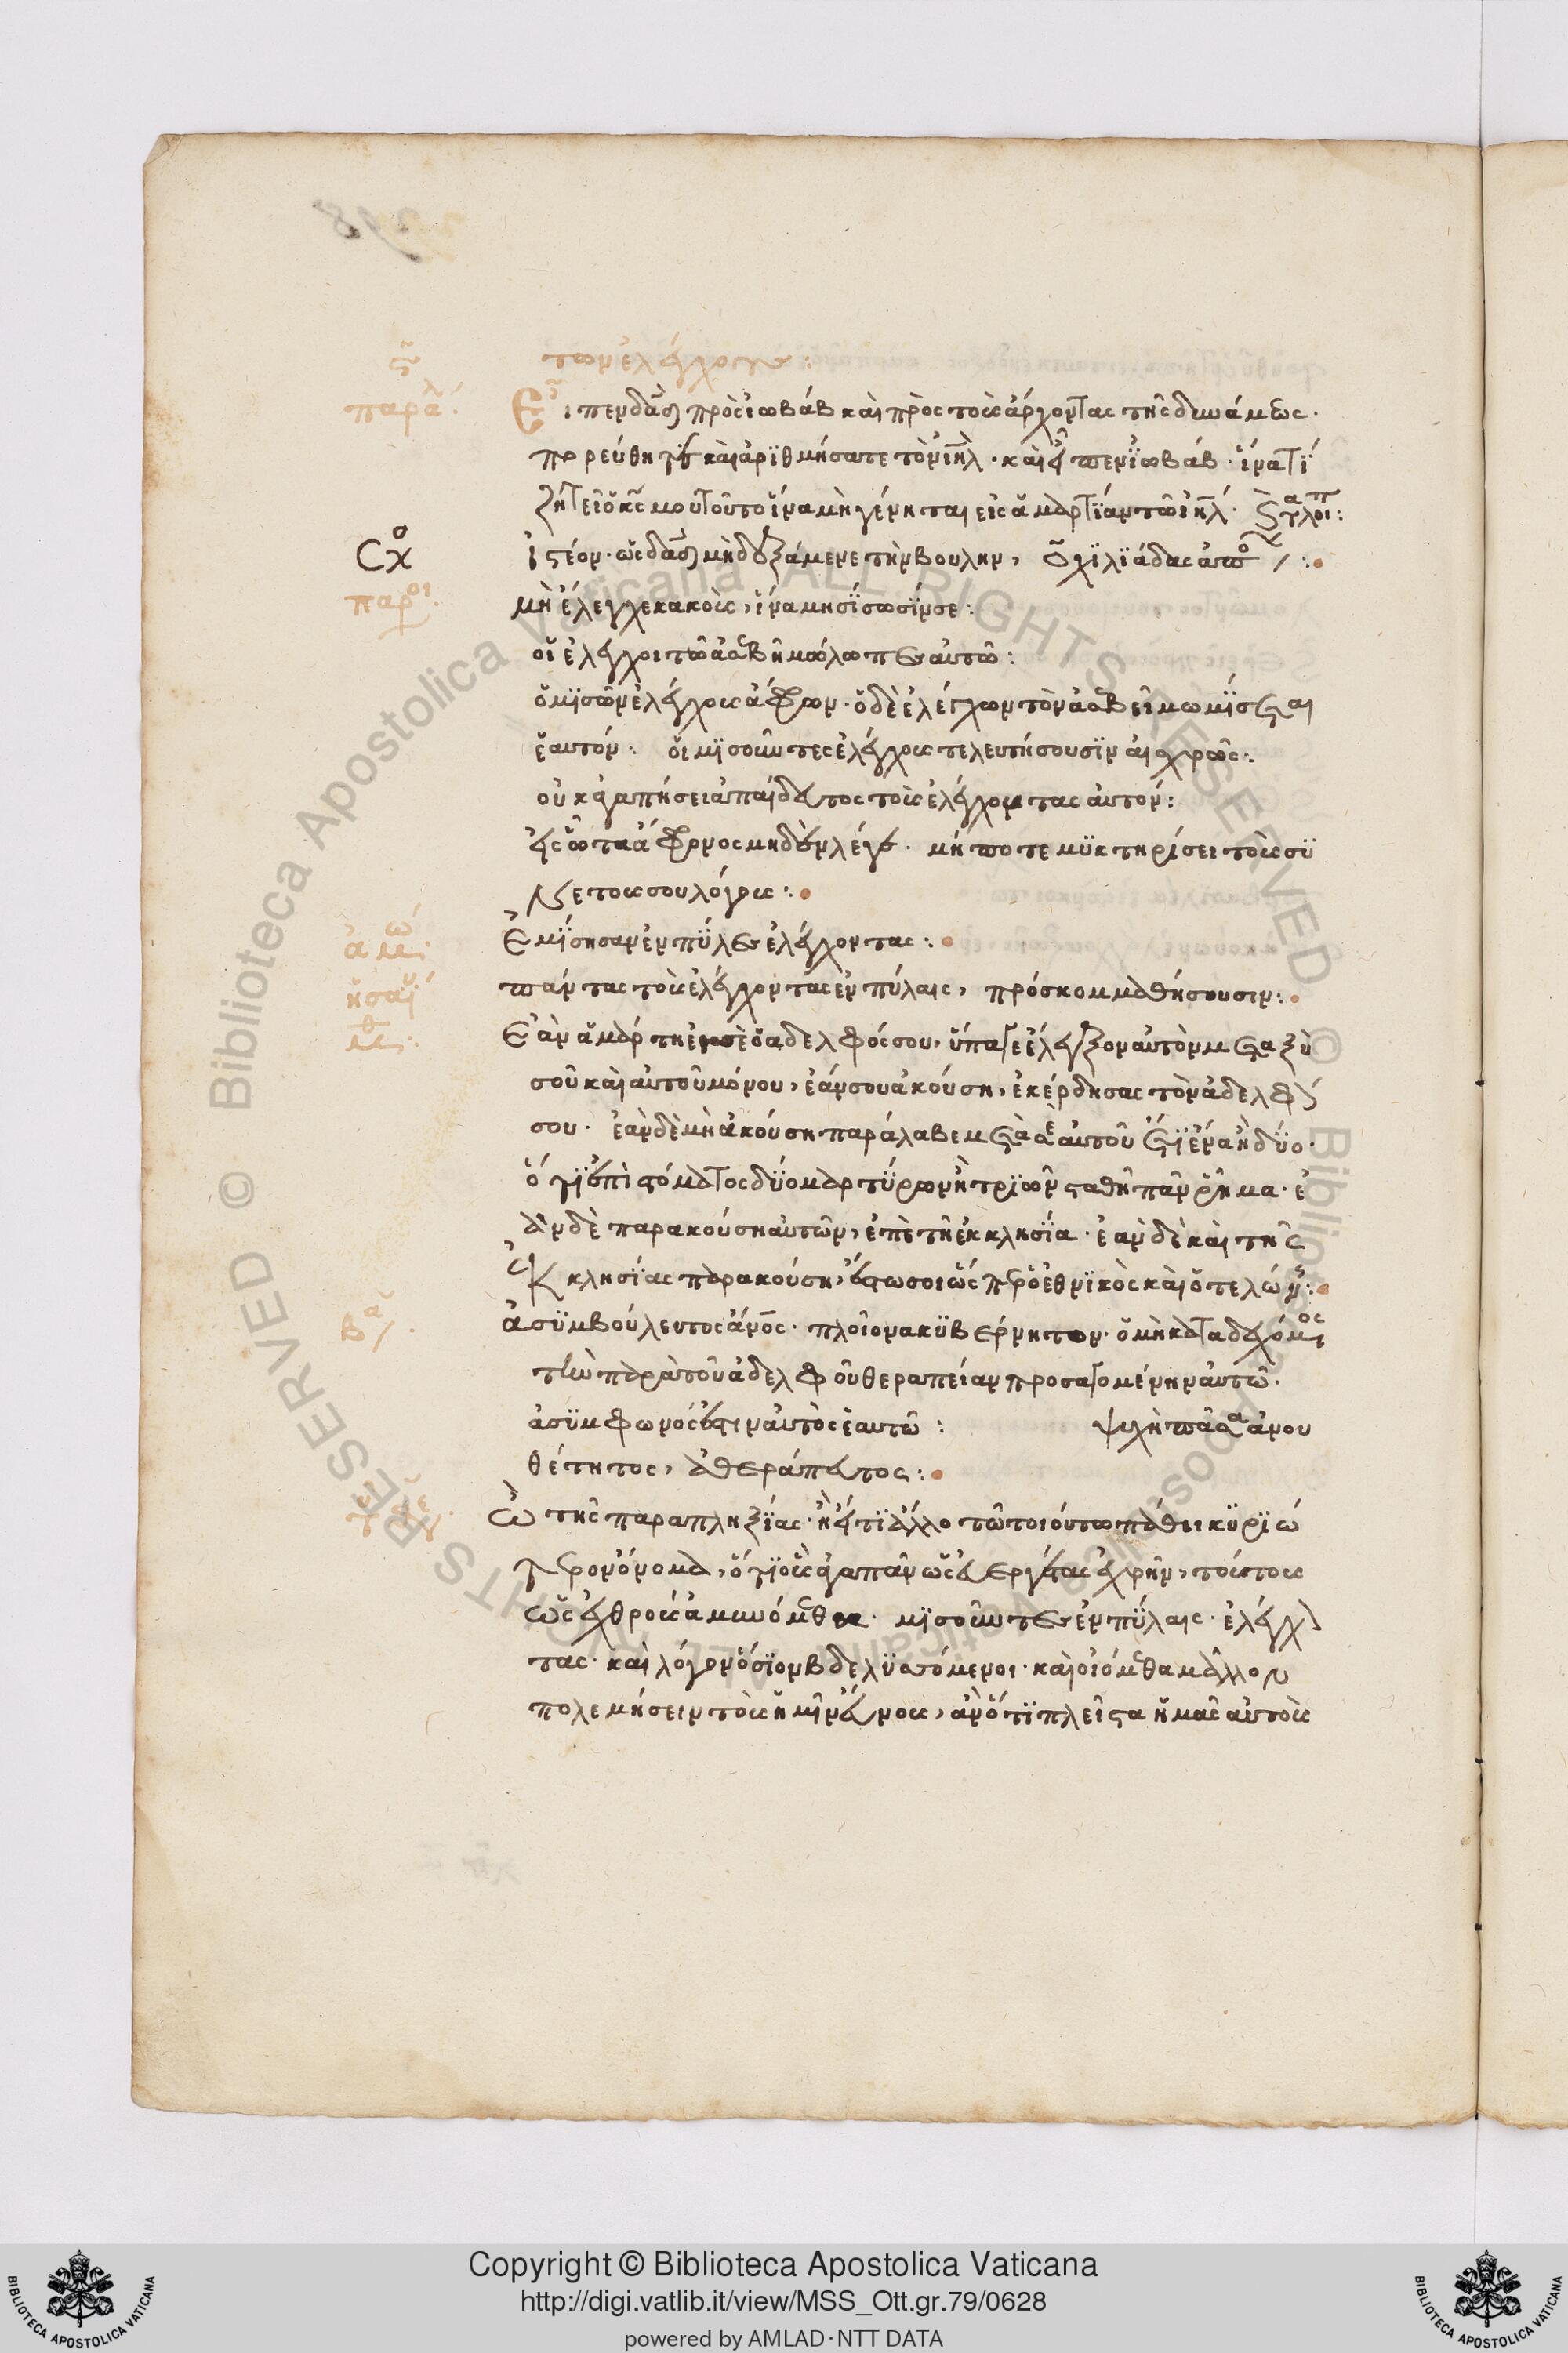 τῶν ἐλέγχοντων :
παρα. Εἶπεν δαδ πρὸς ἰωβὰβ καὶ πρὸς τοὺς ἄρχοντας τῆς δυνάμεως·
πορεύθητε καὶ ἀρϊθμήσατε τὸν ιηλ· καὶ εἶπεν ϊωβάβ· ἵνα τί
ζητεῖ ὁ κς μου τοῦτο ἵνα μὴ γένηται εἰς ἁμαρτΐαν τῶ ιηλ·
Σχο ἰστέον· ὡς δαδ μὴ δεξάμενε τὴν βουλην, ο χϊλϊάδας
παροι. μὴ ἔλεγχε κακοὺς, ἵνα μη σϊσωσϊν σε :
οἱ ἐλεγχοι τῶ ἀσεβῆ μώλωπες αὐτῶ :
ὁ μϊσῶν ἐλέγχους ἄφρων· ὁ δὲ ἐλέγχων τὸν ἀσεβεῖ μωμΐσεται
ἑαυτόν : οἱ μϊσοῦντες ἐλέγχους τελευτήσουσϊν αἰσχρῶς :
οὐκ ἀγαπήσει ἀπαίδευτος τοὺς ἐλέγχοντας αὐτόν :
εἰς ὦτα ἄφρονος μηδὲν λέγε· μή ποτε μϋκτηρίσει τοὺς σϋ
νετους σου λόγους :
ἀμω. Ἐμΐσησαν ἐν πΰλες ἐλέγχοντας :
ἡσαΐ πάντας τοὺς ἐλέγχοντας ἐν πύλαις, πρόσκομμα θήσουσιν :
μθ : Ἐὰν ἁμάρτη εἰς σὲ ὁ αδελφός σου, ὕπαγε ἔλεγξον αὐτὸν μεταξὺ
σοῦ καὶ αὐτοῦ μόνου, ἐάν σου ἀκούση, ἐκέρδησας τὸν ἀδελφόν
σου· ἐὰν δὲ μὴ ἀκούση παράλαβε μετὰ σεαυτοῦ ἔτϊ ἕνα ἢ δΰο·
ὅτϊ ἐπὶ στόματος δΰο μαρτΰρων ἢ τρϊῶν σταθῆ πᾶν ῥῆμα· ἐ
ὰν δὲ παρακούση αὐτῶν, ἐπὲ τῆ ἐκκλησΐα· ἐὰν δὲ καὶ τῆς
ἐκκλησΐας παρακούση, ἔστω σοι ὥσπερ ὁ ἐθνϊκὸς καὶ ὁ τελώνης :
βα. ἀσϋμβούλευτος ἀνος· πλοῖον ακϋβέρνητον· ὁ μὴ καταδεχόμενος
τὴν παρὰ τοῦ ἀδελφοῦ θεραπείαν προσαγομένην αὐτῶ·
ἀσϋμφωνός ἐστιν αὐτὸς ἑαυτῶ : ψυχὴ πᾶσα ἀνου
θέτητος, ἀθεράπευτος :
Ὢ τῆς παραπληξΐας· ἢ ἔτϊ ἄλλο τῶ τοιούτω πάθει κϋρϊώ
τερον ὄνομα, ὅτϊ οὓς ἀγαπᾶν ὡς εὐεργέτας ἐχρῆν, τούτους
ὡς ἐχθροὺς ἀμυνόμεθα· μϊσοῦντες ἐν πΰλαις· ἐλέγχον
τας· καὶ λόγον ὅσϊον βδελϋσσόμενοι· καὶ οἰόμεθα μᾶλλον
πολεμήσειν τοὺς ἡμῖν εὔνους, ἂν ὅτϊ πλεῖστα ἡμᾶς αὐτοὺς
Copyright © Biblioteca Apostolica Vaticana
http://digi.vatlib.it/view/MSS_Ott.gr.79/0628
powered by AMLAD·NTT DATA